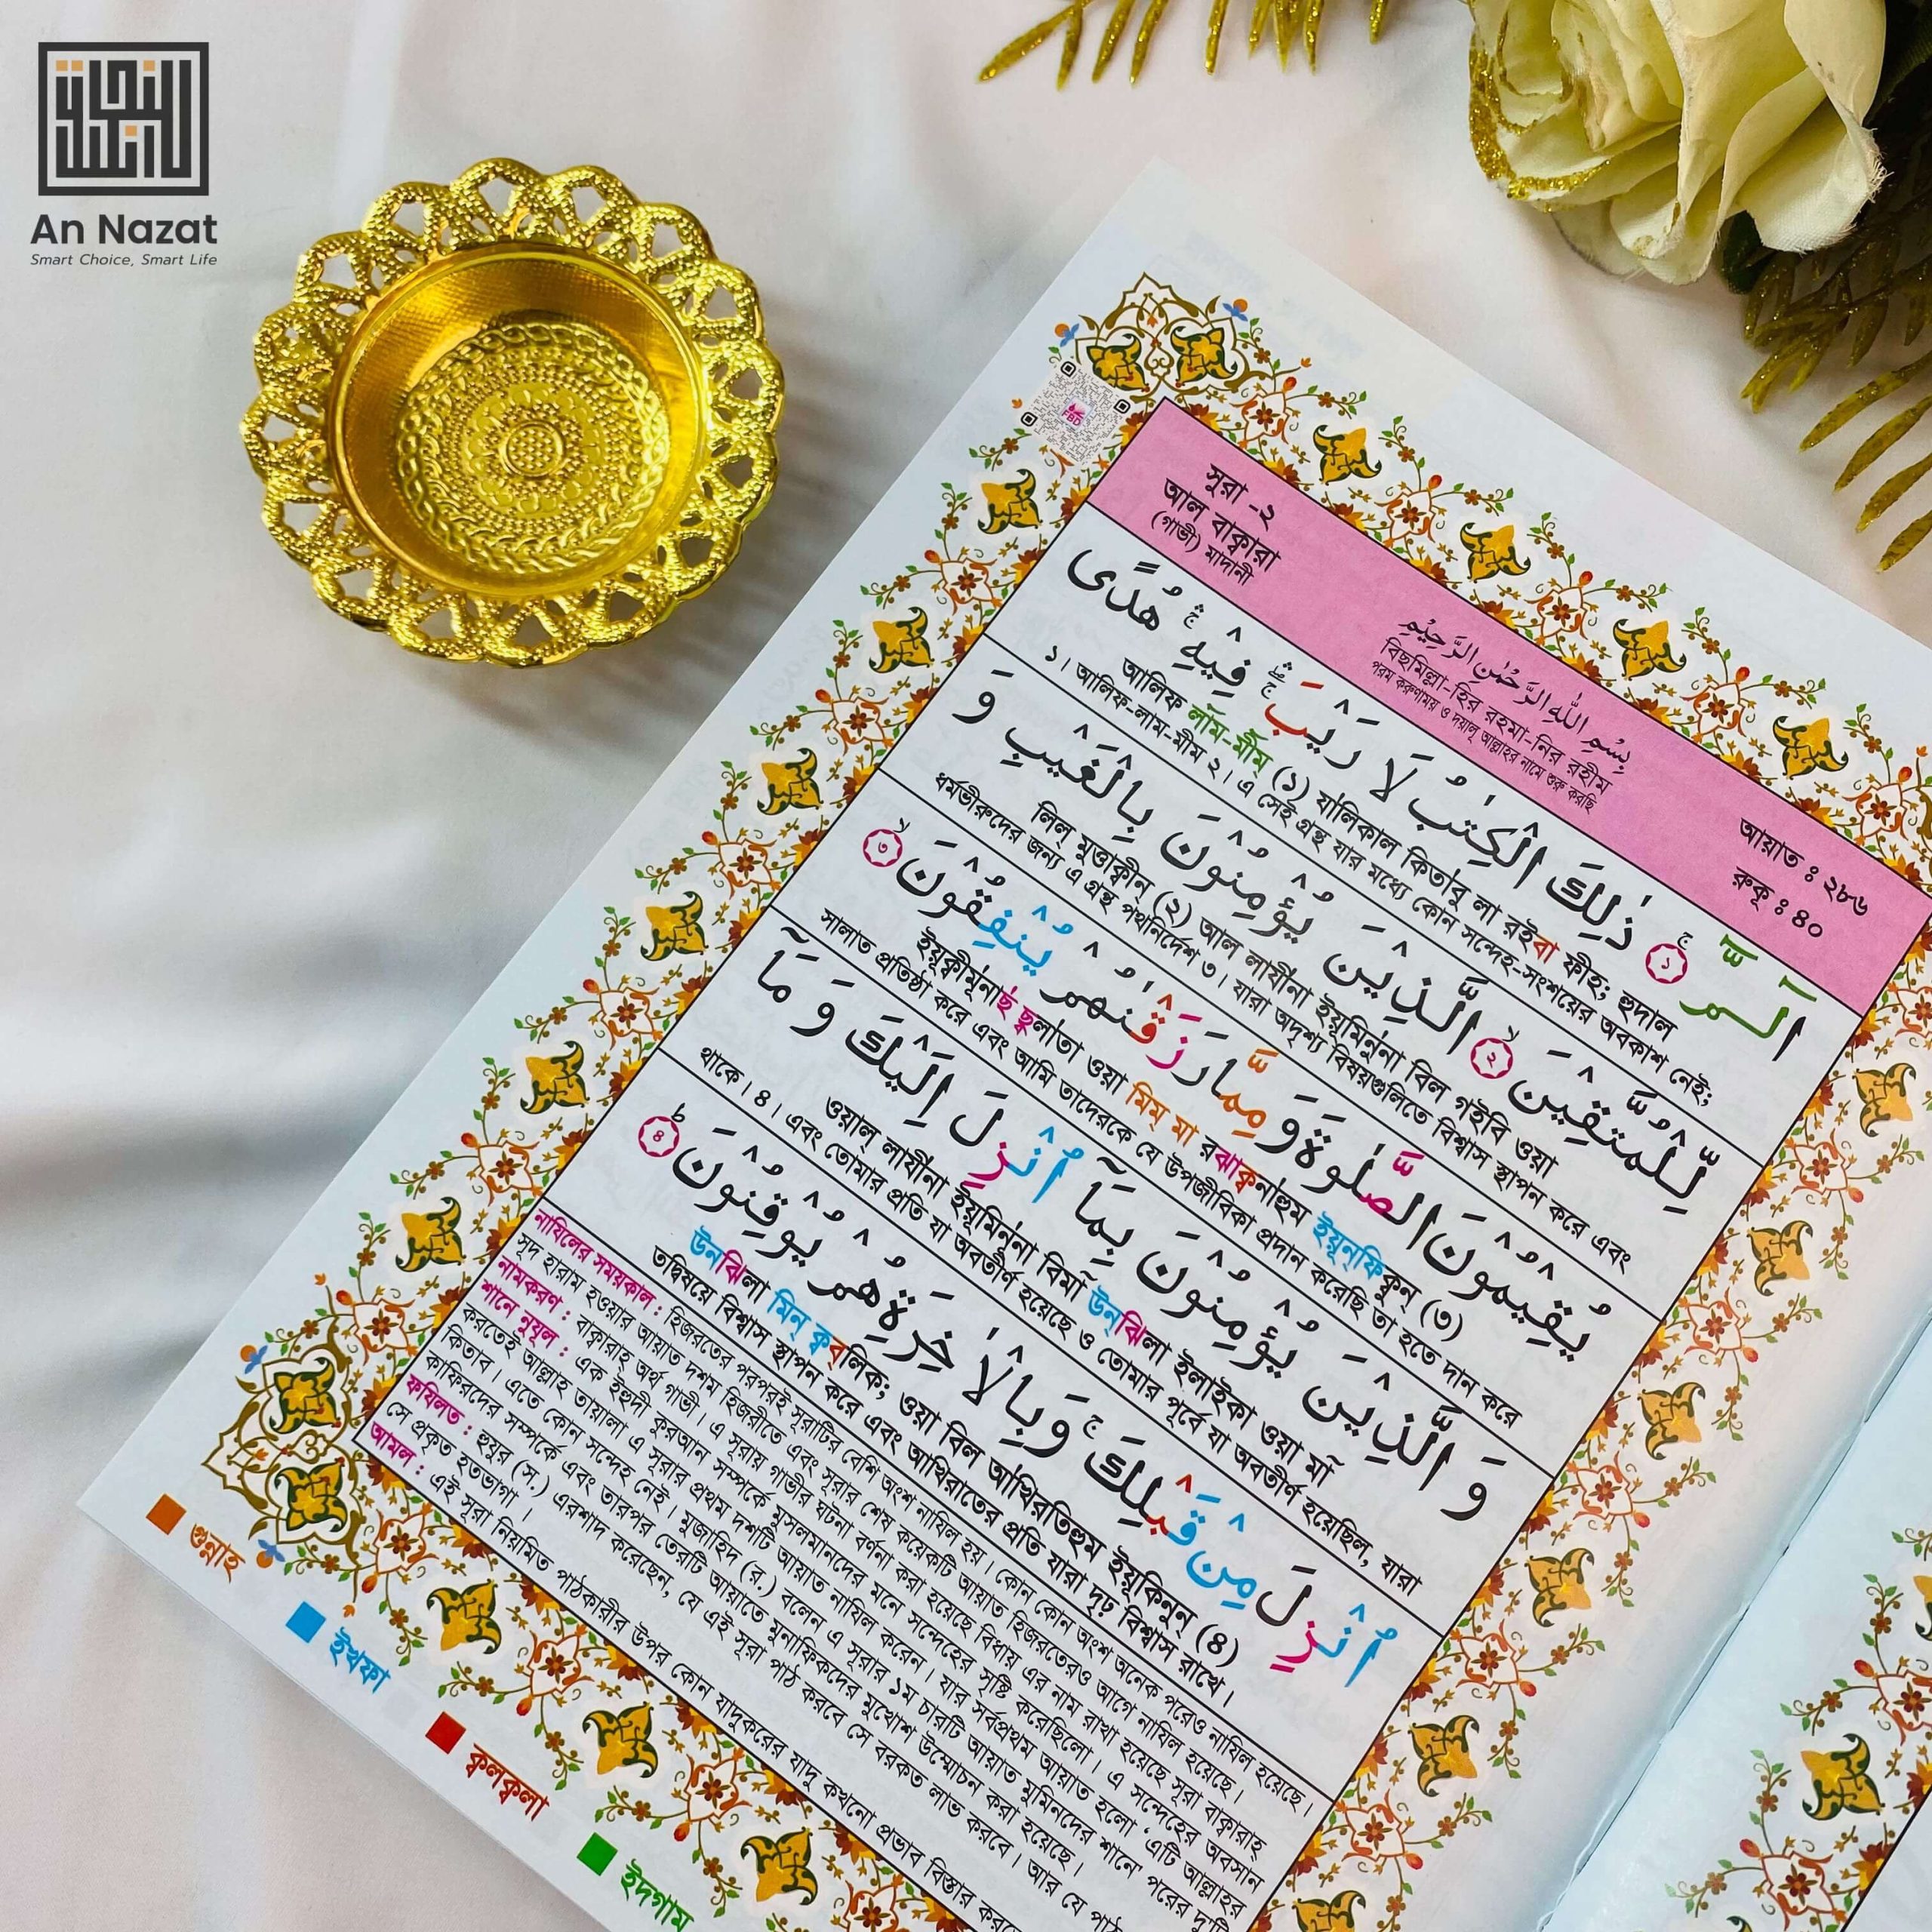 An Nazat
Smart Choice, Smart Life
FBD
সূরা -২
আল বাক্বারা
(গাভী) মাদানী
بِسْمِ اللّٰهِ الرَّحْمٰنِ الرَّحِيْمِ
বিছমিল্লা-হির রহমা-নির রহীম
পরম করুণাময় ও দয়ালু আল্লাহর নামে শুরু করছি
আয়াত : ২৮৬
রুকূ : ৪০
الٓمّٓ ۝١ ذٰلِكَ الْكِتٰبُ لَا رَيْبَ فِيْهِ هُدًى
আলিফ লাম-মীম্ (১) যালিকাল কিতাবু লা রইবা ফীহ; হুদাল
১। আলিফ-লাম-মীম ২। এ সেই গ্রন্থ যার মধ্যে কোন সন্দেহ-সংশয়ের অবকাশ নেই;
لِّلْمُتَّقِيْنَ ۝٢ الَّذِيْنَ يُؤْمِنُوْنَ بِالْغَيْبِ وَ
লিল্ মুত্তাক্বীন্ (২) আল্ লাযীনা ইয়ূমিনুনা বিল গইবি ওয়া
ধর্মভীরুদের জন্য এ গ্রন্থ পথনির্দেশ ৩। যারা অদৃশ্য বিষয়গুলিতে বিশ্বাস স্থাপন করে এবং
يُقِيْمُوْنَ الصَّلٰوةَ وَ مِمَّا رَزَقْنٰهُمْ يُنْفِقُوْنَ ۝٣
ইয়ূক্বীমূনাছ্ ছলাতা ওয়া মিম্ মা রঝাক্বনাহুম ইয়ূন্ফিকুন্ (৩)
সালাত প্রতিষ্ঠা করে এবং আমি তাদেরকে যে উপজীবিকা প্রদান করেছি তা হতে দান করে
وَ الَّذِيْنَ يُؤْمِنُوْنَ بِمَآ اُنْزِلَ اِلَيْكَ وَ مَآ
ওয়াল্ লাযীনা ইয়ূমিনুনা বিমা উন্ঝিলা ইলাইকা ওয়া মা
থাকে। ৪। এবং তোমার প্রতি যা অবতীর্ণ হয়েছে ও তোমার পূর্বে যা অবতীর্ণ হয়েছিল, যারা
اُنْزِلَ مِنْ قَبْلِكَ وَبِالْاٰخِرَةِ هُمْ يُوْقِنُوْنَ ۝٤
উনঝিলা মিন্ ক্বব্লিক; ওয়া বিল আখিরতিহুম ইয়ূকিনুন্ (৪)
তদ্বিষয়ে বিশ্বাস স্থাপন করে এবং আখিরাতের প্রতি যারা দৃঢ় বিশ্বাস রাখে।
নাযিলের সময়কাল : হিজরতের পরপরই সূরাটির বেশি অংশ নাযিল হয়। কোন কোন অংশ অনেক পরেও নাযিল হয়েছে।
সূদ হারাম হওয়ার আয়াত দশম হিজরীতে এবং সূরার শেষ কয়েকটি আয়াত হিজরতেরও আগে নাযিল হয়েছে।
নামকরণ : বাক্বারাহ্ অর্থ গাভী। এ সূরায় গাভীর ঘটনা বর্ণনা করা হয়েছে বিধায় এর নাম রাখা হয়েছে সূরা বাক্বারাহ্
শানে নুযূল : এক ইহুদী কুরআন সম্পর্কে মুসলমানদের মনে সন্দেহের সৃষ্টি করেছিলো। এ সন্দেহের অবসান
করতেই আল্লাহ তায়ালা এ সূরার প্রথম দশটি আয়াত নাযিল করেন। যার সর্বপ্রথম আয়াত হলো 'এটি আল্লাহর
কিতাব। এতে কোন সন্দেহ নেই। মুজাহিদ (র.) বলেন এ সূরার ১ম চারটি আয়াত মুমিনদের শানে' পরের দু'টি
কাফিরদের সম্পর্কে এবং তারপর তেরটি আয়াতে মুনাফিকদের মুখোশ উম্মোচন করা হয়েছে।
ফযিলত : হুযুর (স.) এরশাদ করেছেন, যে এই সূরা পাঠ করবে সে বরকত লাভ করবে। আর যে
সে প্রকৃত হতভাগা।
আমল : এই সূরা নিয়মিত পাঠকারীর উপর কোন যাদুকরের যাদু কখনো প্রভাব বিস্তার
গুন্নাহ
ইখফা
ক্বলক্বলা
ইদগাম